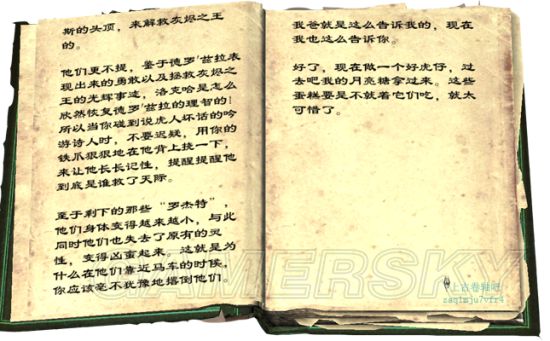 斯的头顶，来解救灰烬之王
的。
他们更不提，鉴于德罗'兹拉表
现出来的勇敢以及拯救灰烬之
王的光辉事迹，洛克哈是怎么
欣然恢复德罗'兹拉的理智的！
所以当你碰到说虎人坏话的吟
游诗人时，不要迟疑，用你的
铁爪狠狠地在他背上挠一下，
来让他长长记性，提醒提醒他
到底是谁救了天际。
至于剩下的那些“罗杰特”，
他们身体变得越来越小，与此
同时他们也失去了原有的灵
性，变得凶蛮起来。这就是为
什么在他们靠近马车的时候，
你应该毫不犹豫地撂倒他们。
我爸就是这么告诉我的，现在
我也这么告诉你。
好了，现在做一个好虎仔，过
去吧我的月亮糖拿过来。这些
蛋糕要是不就着它们吃，就太
可惜了。
GAMERSKY
上古卷轴吧
zaq1mju7vfr4